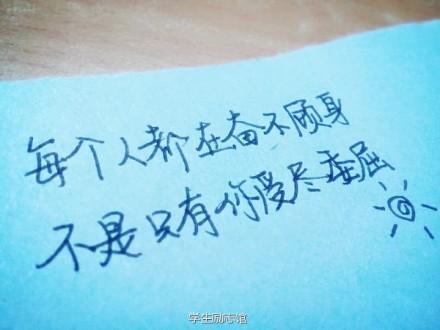 每个人都在奋不顾身
不是只有你受尽委屈
学生励志馆